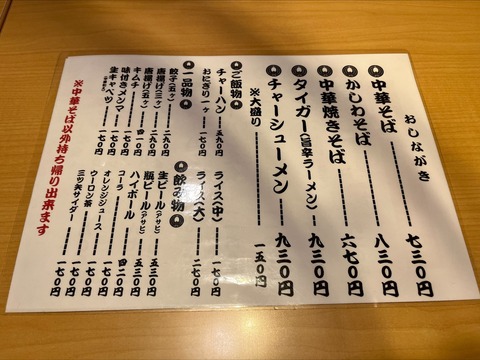 おしながき
中華そば 七三〇円
かしわそば 八三〇円
中華焼きそば 六七〇円
タイガー(旨辛ラーメン) 九三〇円
チャーシューメン 九三〇円
※大盛り 一五〇円
ご飯物
チャーハン
おにぎり一ヶ
ライス(中) 一七〇円
ライス(大) 二七〇円
一品物
餃子(五ヶ) 二九〇円
唐揚げ(三ヶ) 二九〇円
唐揚げ(五ヶ) 四一〇円
キムチ
味付きメンマ
生キャベツ
飲み物
生ビール(アサヒ) 五三〇円
瓶ビール(アサヒ) 五三〇円
ハイボール 四二〇円
コーラ 一七〇円
オレンジジュース 一七〇円
ウーロン茶 一七〇円
三ツ矢サイダー 一七〇円
※中華そば以外持ち帰り出来ます